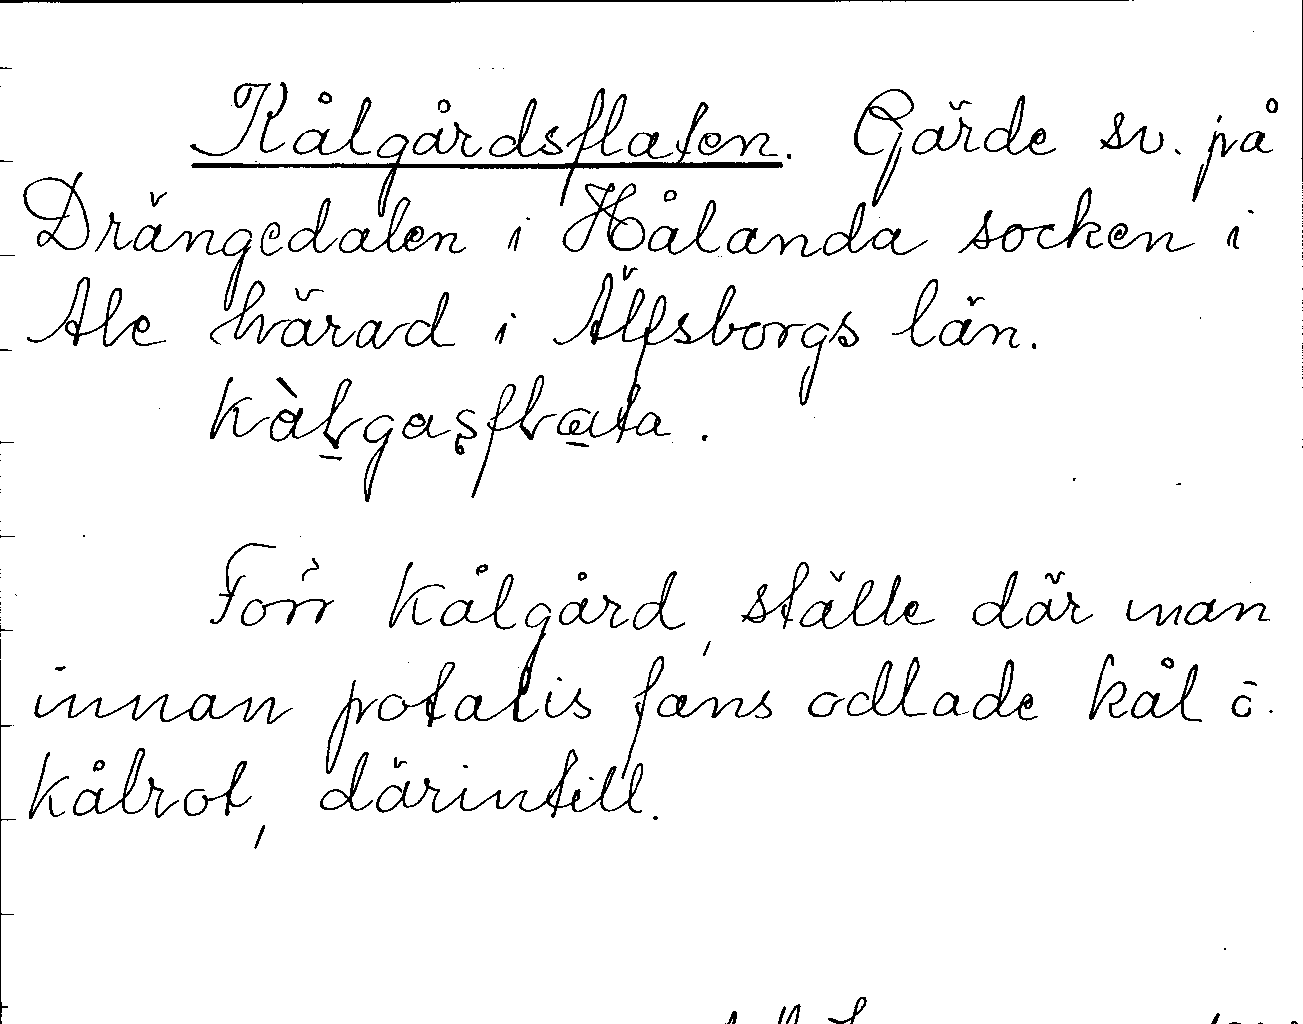 Kålgårdsflaten. Gärde sv. på
Drängedalen i Hålanda socken i
Ale härad i Älfsborgs län.
kàlgasflata.
Förr kålgård, ställe där man
innan potatis fans odlade kål o.
kålrot, därintill.